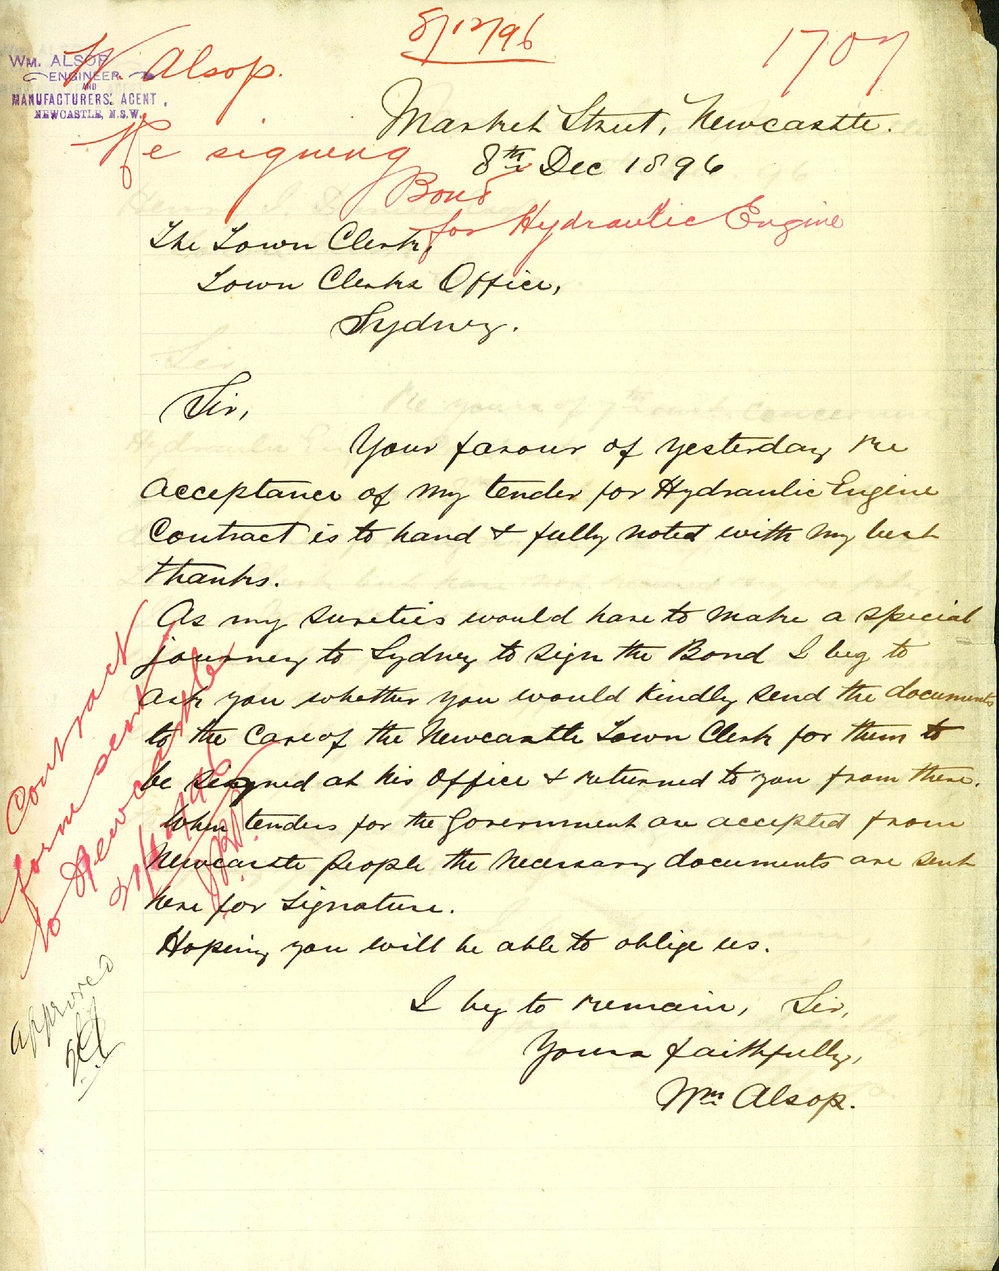 8/12/96
1707
WM. ALSOP
ENGINEER
AND
MANUFACTURERS' AGENT,
NEWCASTLE, N.S.W.
W. Alsop.
Re signing
Bond
for Hydraulic Engine
Market Street, Newcastle.
8th Dec 1896
The Town Clerk,
Town Clerks Office,
Sydney.
Sir,
Your favour of yesterday re
Acceptance of my tender for Hydraulic Engine
Contract is to hand & fully noted with my best
thanks.
As my sureties would have to make a special
journey to Sydney to sign the Bond I beg to
ask you whether you would kindly send the documents
to the Care of the Newcastle Town Clerk for them to
be signed at his Office & returned to you from there.
When tenders for the Government are accepted from
Newcastle people the necessary documents are sent
here for signature.
Hoping you will be able to oblige us.
I beg to remain, Sir,
Yours faithfully,
Wm Alsop.
Contract
forms sent
to Newcastle
approved